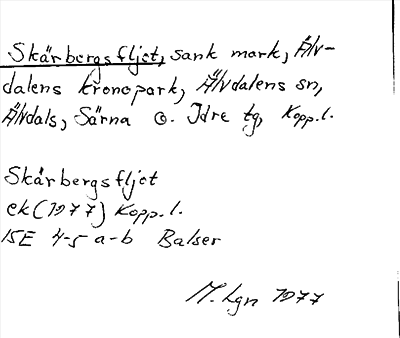 Skärbergsfljot, sank mark, Älv-
dalens kronopark, Älvdalens sn,
Älvdals, Särna o. Idre tg, Kopp.l.
Skärbergsfljot
ek (1977) Kopp.l.
15E 4-5 a-b Balser
M. Lgn 1977